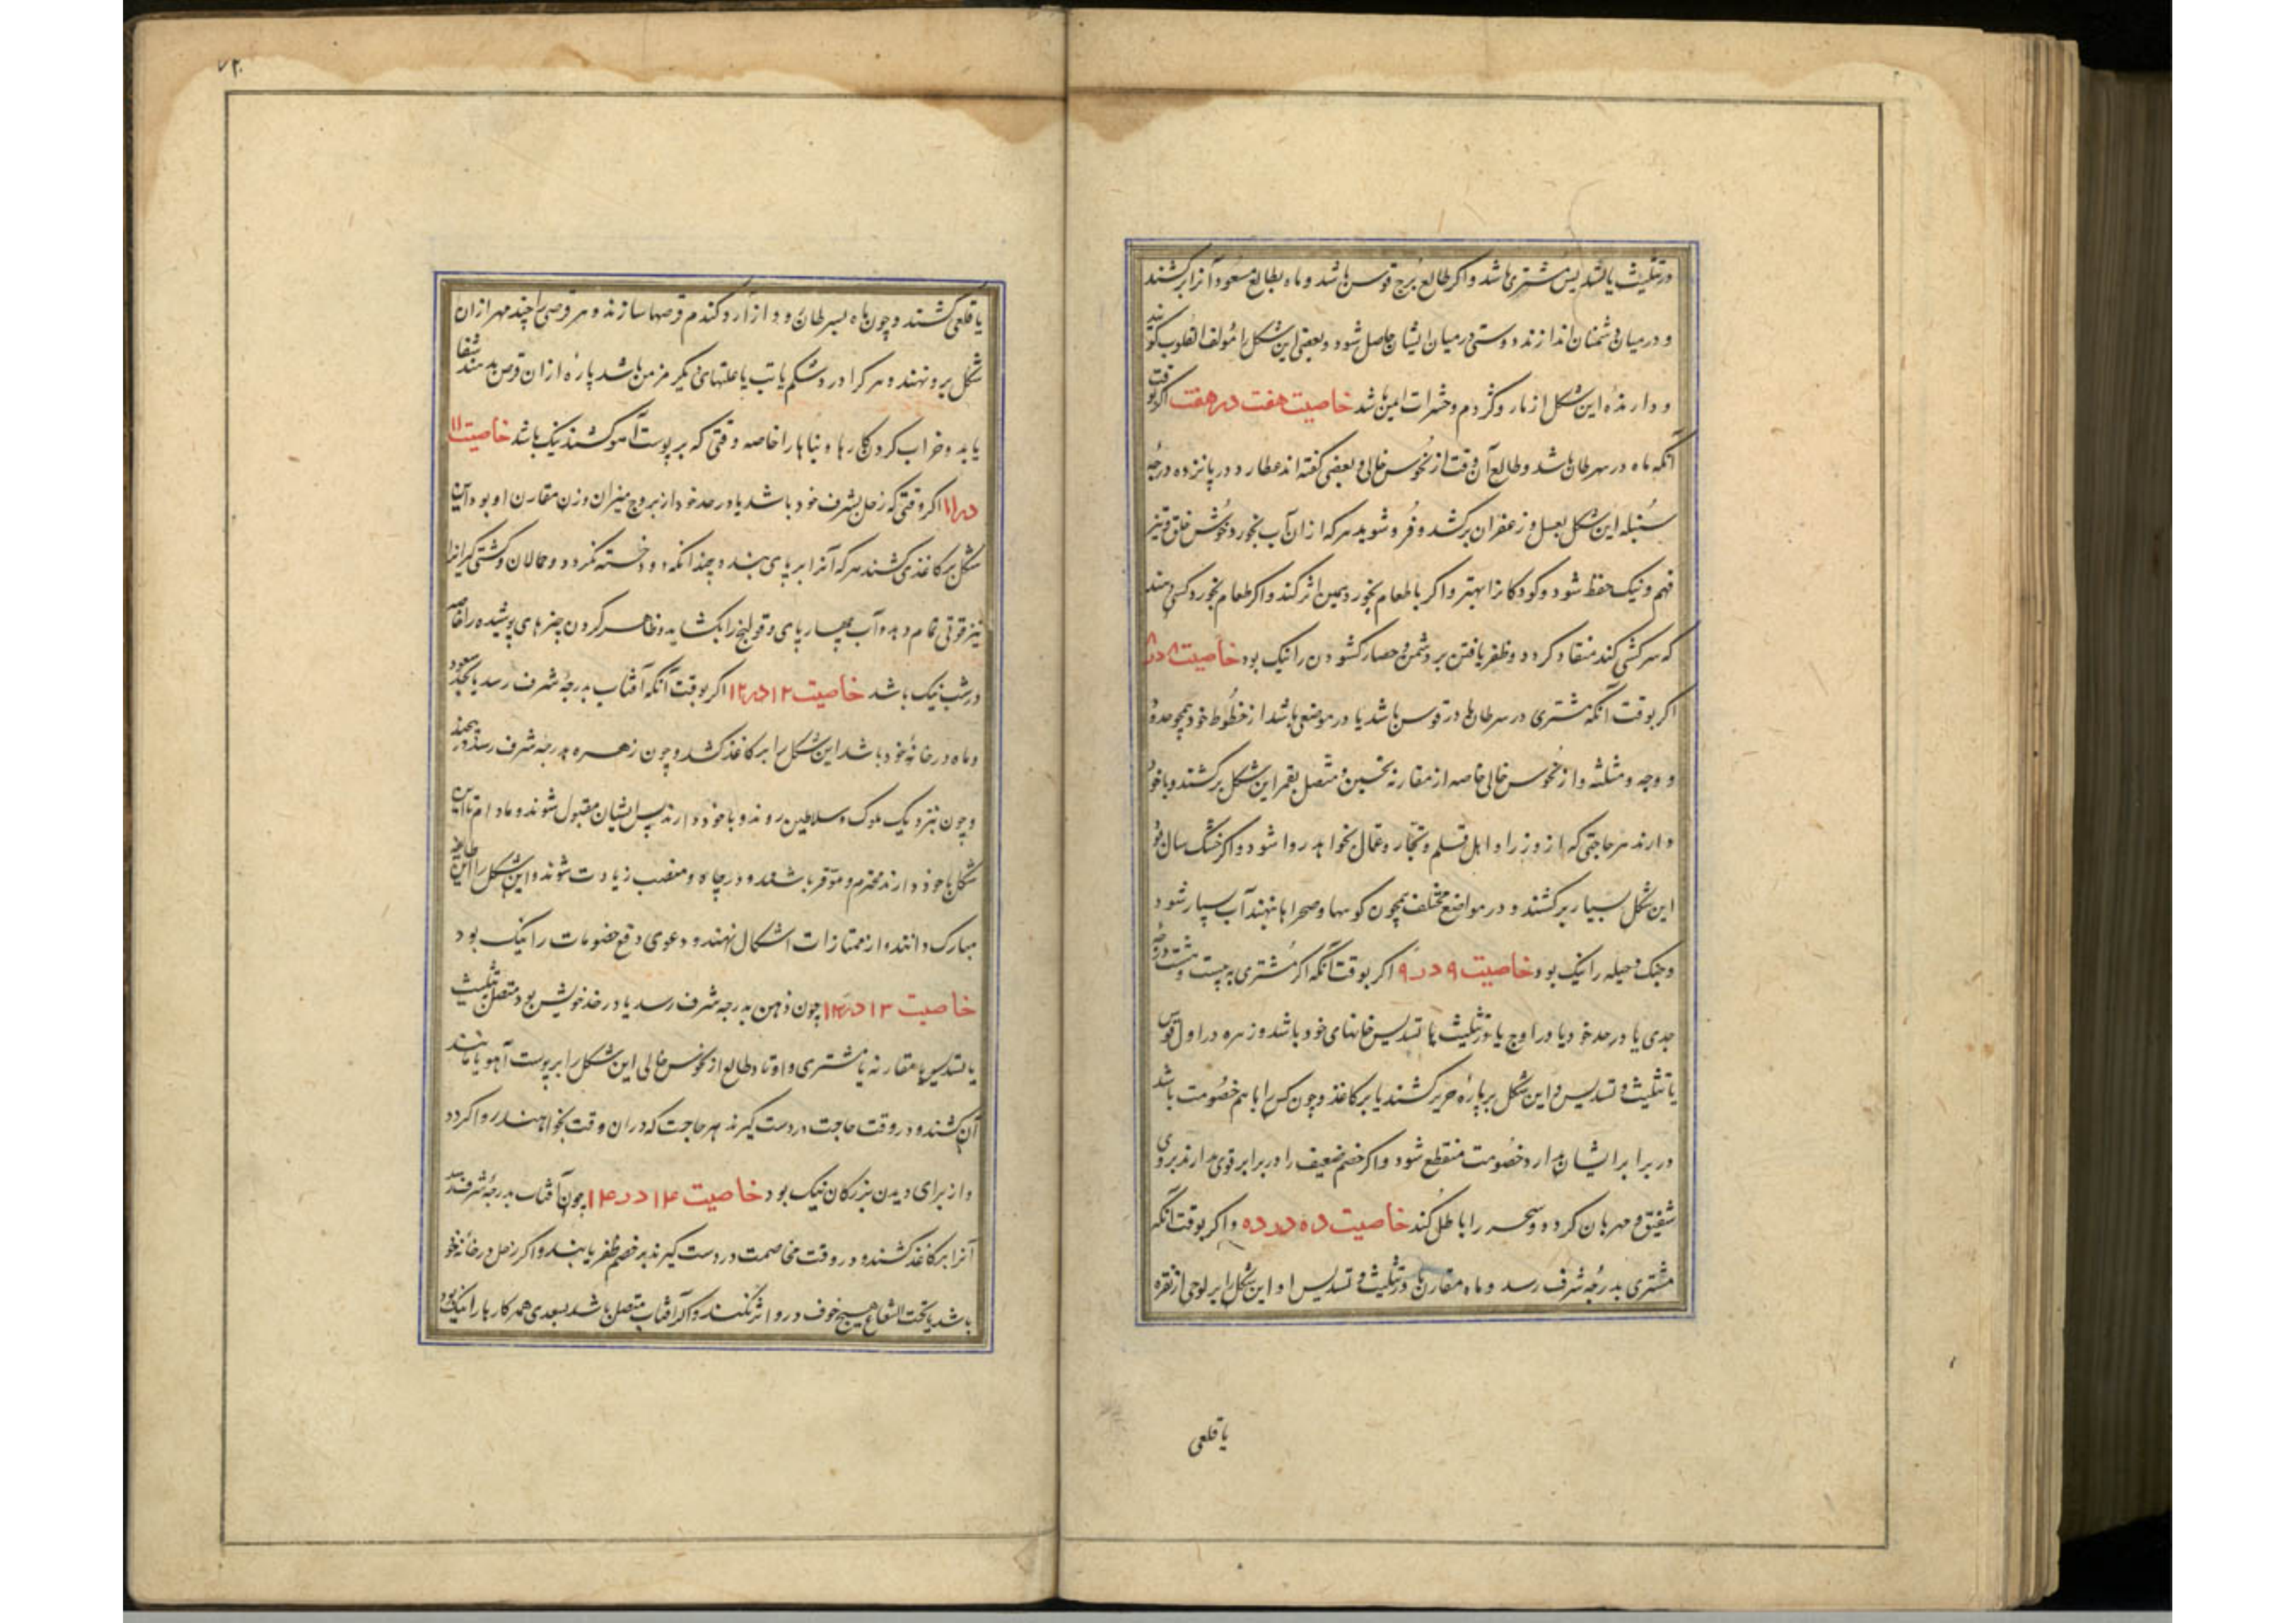 در تثلیث یا تسدیس مشتری باشد و اگر طالع برج قوس باشد و ماه بطالع مسعود آنرا برکشند
و در میان دشمنان اندازند دوستی در میان ایشان حاصل شود و بعضی این شکل را مؤلف القلوب گویند
و دارنده این شکل از مار و کژدم و حشرات ایمن باشد خاصیت هفت در هفت اگر بوقت
آنکه ماه در سرطان باشد و طالع آن وقت از نحوس خالی و بعضی گفته اند عطارد در پانزده درجه
سنبله این شکل بعسل و زعفران برکشد و فرو شوید هر که ازان آب بخورد خوش خلق و تیز
فهم و نیک حفظ شود و کودکانرا بهتر و اگر با طعام بخورد همین اثر کند و اگر طعام بخورد کسی دهند
که سرکشی کند منقاد کردد و ظفر یافتن بر دشمن و حصار کشودن را نیک بود خاصیت ۸ در ۸
اکر بوقت آنکه مشتری در سرطان یا در قوس باشد یا در موضعی باشد از خطوط خود همچو حدود
و وجه و مثلثه و از نحوس خالی خاصه از مقارنه نحسین و متصل بقمر این شکل برکشند و با خود
دارند هر حاجتی که از وزرا و اهل قلم و تجار و عمال بخواهد روا شود و اکر خشک سال بود
این شکل بسیار برکشند و در مواضع مختلف همچون کوهها و صحراها بنهند آب بسیار شود
و جنک و حیله را نیک بود خاصیت ۹ در ۹ اکر بوقت آنکه اکر مشتری به بیست و هشت درجه
جدی یا در حد خود یا در اوج یا در تثلیث یا تسدیس خانهای خود باشد و زهره در اول قوس
یا تثلیث و تسدیس و این شکل بر پارۀ حریر کشند یا بر کاغذ و چون کس را با هم خصومت باشد
در برابر ایشان بدارد خصومت منقطع شود و اکر خصم ضعیف را در برابر قوی بدارند بر وی
شفیق و مهربان کردد و سحر را باطل کند خاصیت ده در ده و اکر بوقت آنکه
مشتری بدرجه شرف رسد و ماه مقارن یا در تثلیث و تسدیس او این شکل را بر لوحی از نقره
یا قلعی
۷۲
یا قلعی کشند و چون ماه بسرطان رود از آرد کندم قرصها سازند و هر قرصی را چند مهر ازان
شکل برو نهند و هر کرا درد شکم یا تب یا علتهای دیگر مزمن باشد پارۀ ازان قرص بدهند شفا
یابد و خراب کردن کارها و بناها را خاصه وقتی که بر پوست آهو کشند نیک باشد خاصیت ۱۱
در ۱۱ اکر وقتی که زحل بشرف خود باشد یا در حد خود از بروج میزان و زن مقارن او بود این
شکل بر کاغذی کشند هر که آنرا بر پای بندد چندانکه دود خسته نکردد و حمالان و کشتی گیرانرا
نیز قوتی تمام دهد و آب چهارپای و قولنج را بکشاید و ظاهر کردن چیزهای پوشیده را خاصه
در شب نیک باشد خاصیت ۱۲ در ۱۲ اکر بوقت آنکه آفتاب بدرجه شرف رسد یا بحد سعود
و ماه در خانۀ خود باشد این شکل را بر کاغذ کشد و چون زهره بدرجه شرف رسد در
و چون نزدیک ملوک و سلاطین روند و با خود دارند پیش ایشان مقبول شوند و مادام تا این
شکل با خود دارند محترم و موقر باشند و در جاه و منصب زیادت شوند و این شکل را
مبارک دانند و از ممتازات اشکال نهند و دعوی دفع خصومات را نیک بود
خاصیت ۱۳ در ۱۳ چون ذهن بدرجه شرف رسد یا در حد خویش بود متصل بتثلیث
یا تسدیس یا مقارنه با مشتری و اوتاد طالع از نحوس خالی این شکل را بر پوست آهو یا مانند
آن کشند و در وقت حاجت در دست کیرند هر حاجت که دران وقت بخواهند روا کردد
و از برای دیدن بزرکان نیک بود خاصیت ۱۴ در ۱۴ چون آفتاب بدرجه شرف رسد
آنرا بر کاغذ کشند و در وقت مخاصمت در دست کیرند بر خصم ظفر یابند و اکر زحل در خانه خود
باشد یا تحت الشعاع هیچ خوف درو اثر نکند و اکر آفتاب متصل باشد بسعدی همه کارها را نیک بود